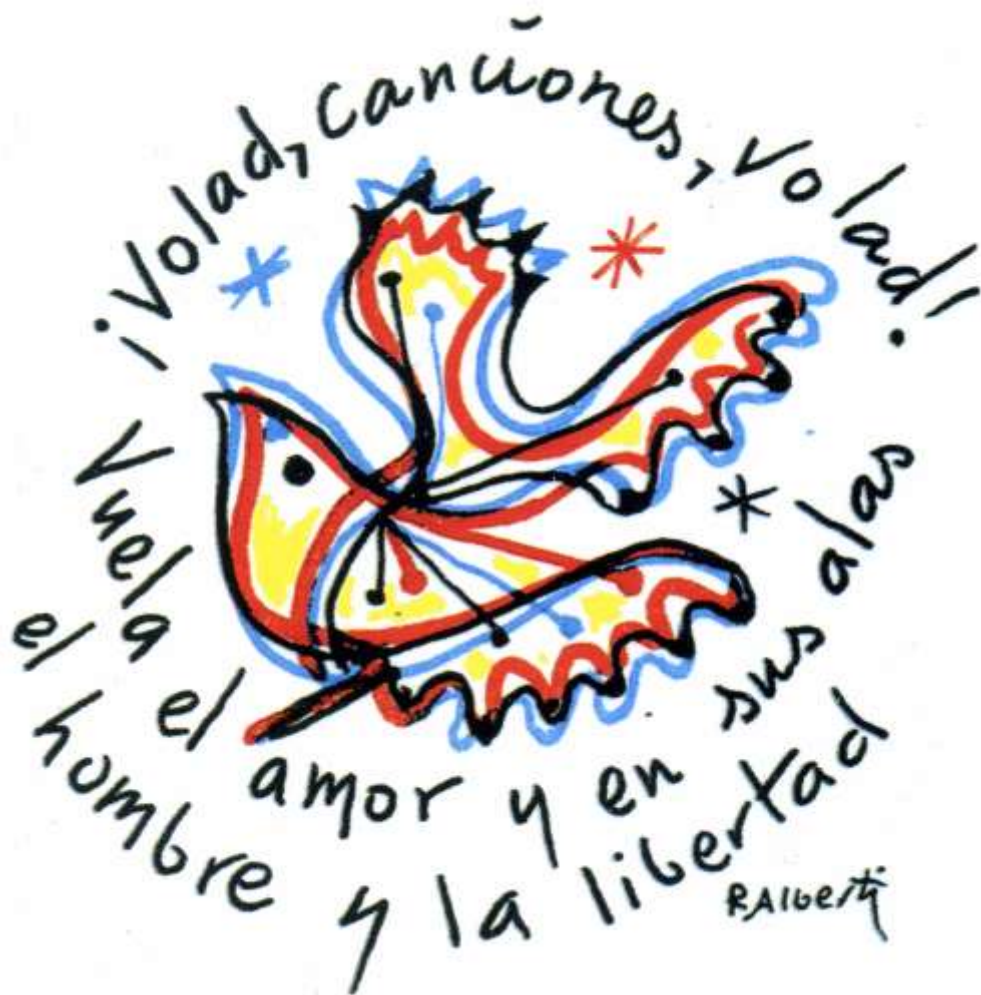 ¡Volad, canciones, volad!
Vuela el amor y en sus alas
el hombre y la libertad
R. Alberti